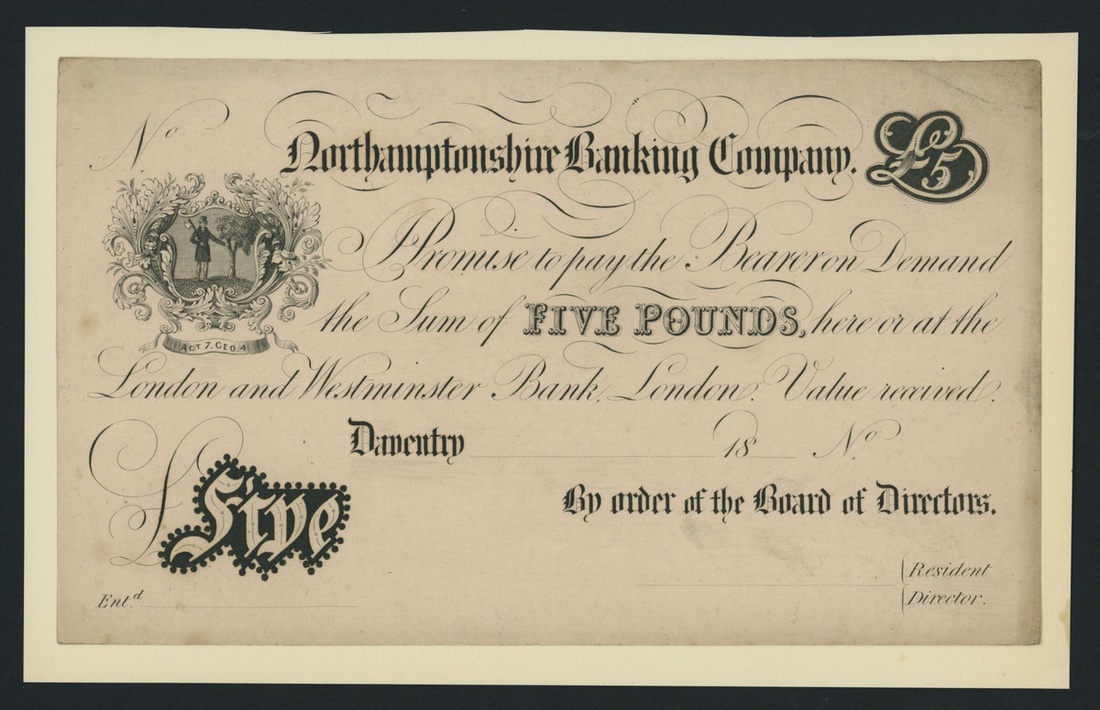 No
Northamptonshire Banking Company.
£5
I Promise to pay the Bearer on Demand
the Sum of FIVE POUNDS, here or at the
ACT 7. GEO. 4
London and Westminster Bank, London. Value received.
Daventry 18 No
£ Five
By order of the Board of Directors.
Resident
Director.
Ent.d